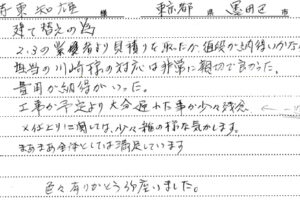 東 知雄 様 東京都 県 墨田区 市
建て替えの為
2.3の業者より見積りを取ったが値段が納得いかな
担当の川崎様の対応は非常に親切で良かった。
費用が納得がいった。
工事が予定より大分遅れた事が少々残念
×仕上りに関しては、少々雑の様な気がします。
まあまあ全体としては満足しています
色々ありがとう御座いました。